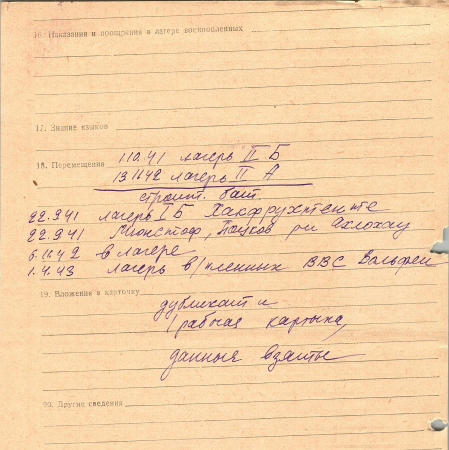 16. Наказания и поощрения в лагере военнопленных
17. Знание языков
18. Перемещения 1 10.41 лагерь II Б
13 11 42 лагерь II А
строит. бат.
22.9 41 лагерь I Б
22.9 41
6.11 42 в лагере
1.4.43 лагерь в/пленных ВВС Вольфен
19. Вложения в карточку
дубликат и
рабочая карточка,
данные взяты
20. Другие сведения